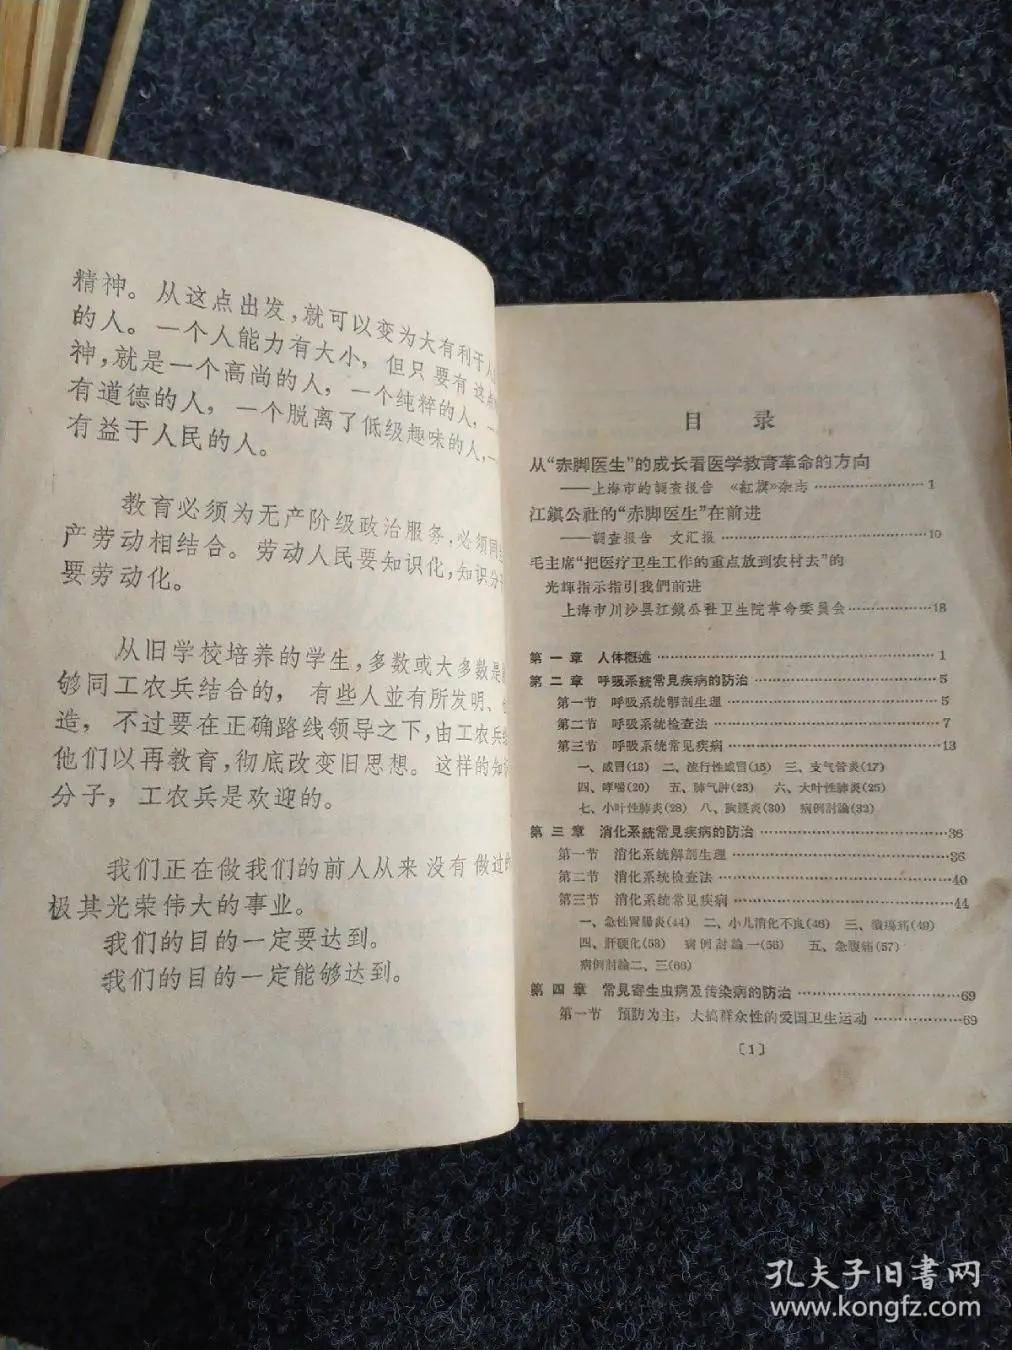 精神。从这点出发，就可以变为大有利于人
的人。一个人能力有大小，但只要有这点
神，就是一个高尚的人，一个纯粹的人，一
有道德的人，一个脱离了低级趣味的人，一
有益于人民的人。
教育必须为无产阶级政治服务，必须同
产劳动相结合。劳动人民要知识化，知识分
要劳动化。
从旧学校培养的学生，多数或大多数是
够同工农兵结合的，有些人並有所发明、
造，不过要在正确路线领导之下，由工农兵
他们以再教育，彻底改变旧思想。这样的知
分子，工农兵是欢迎的。
我们正在做我们的前人从来没有做过的
极其光荣伟大的事业。
我们的目的一定要达到。
我们的目的一定能够达到。
目 录
从“赤脚医生”的成长看医学教育革命的方向
——上海市的調查报告 《紅旗》杂志……………………1
江鎭公社的“赤脚医生”在前进
——調查报告 文汇报……………………10
毛主席“把医疗卫生工作的重点放到农村去”的
光輝指示指引我們前进
上海市川沙县江鎭公社卫生院革命委員会……………18
第一章 人体概述……………………1
第二章 呼吸系統常見疾病的防治……………………5
第一节 呼吸系統解剖生理……………………5
第二节 呼吸系統检查法……………………7
第三节 呼吸系統常見疾病……………………13
一、感冒(13) 二、流行性感冒(15) 三、支气管炎(17)
四、哮喘(20) 五、肺气肿(23) 六、大叶性肺炎(25)
七、小叶性肺炎(28) 八、胸膜炎(30) 病例討論(32)
第三章 消化系統常見疾病的防治……………………36
第一节 消化系統解剖生理……………………36
第二节 消化系統检查法……………………40
第三节 消化系統常見疾病……………………44
一、急性胃腸炎(44) 二、小儿消化不良(46) 三、潰瘍病(49)
四、肝硬化(53) 病例討論一(56) 五、急腹痛(57)
病例討論二、三(66)
第四章 常見寄生虫病及传染病的防治……………………69
第一节 預防为主，大搞群众性的爱国卫生运动……………69
〔1〕
孔夫子旧書网
www.kongfz.com